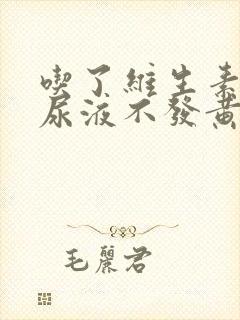 喫了維生素
尿液不發黃
毛麗君